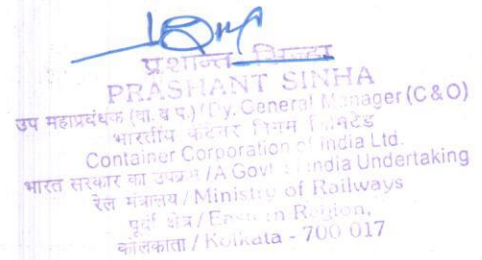 प्रशान्त सिन्हा
PRASHANT SINHA
उप महाप्रबंधक (वा. व प.) / Dy. General Manager (C & O)
भारतीय कंटेनर निगम लिमिटेड
Container Corporation of India Ltd.
भारत सरकार का उपक्रम / A Govt. of India Undertaking
रेल मंत्रालय / Ministry of Railways
पूर्वी क्षेत्र / Eastern Region,
कोलकाता / Kolkata - 700 017